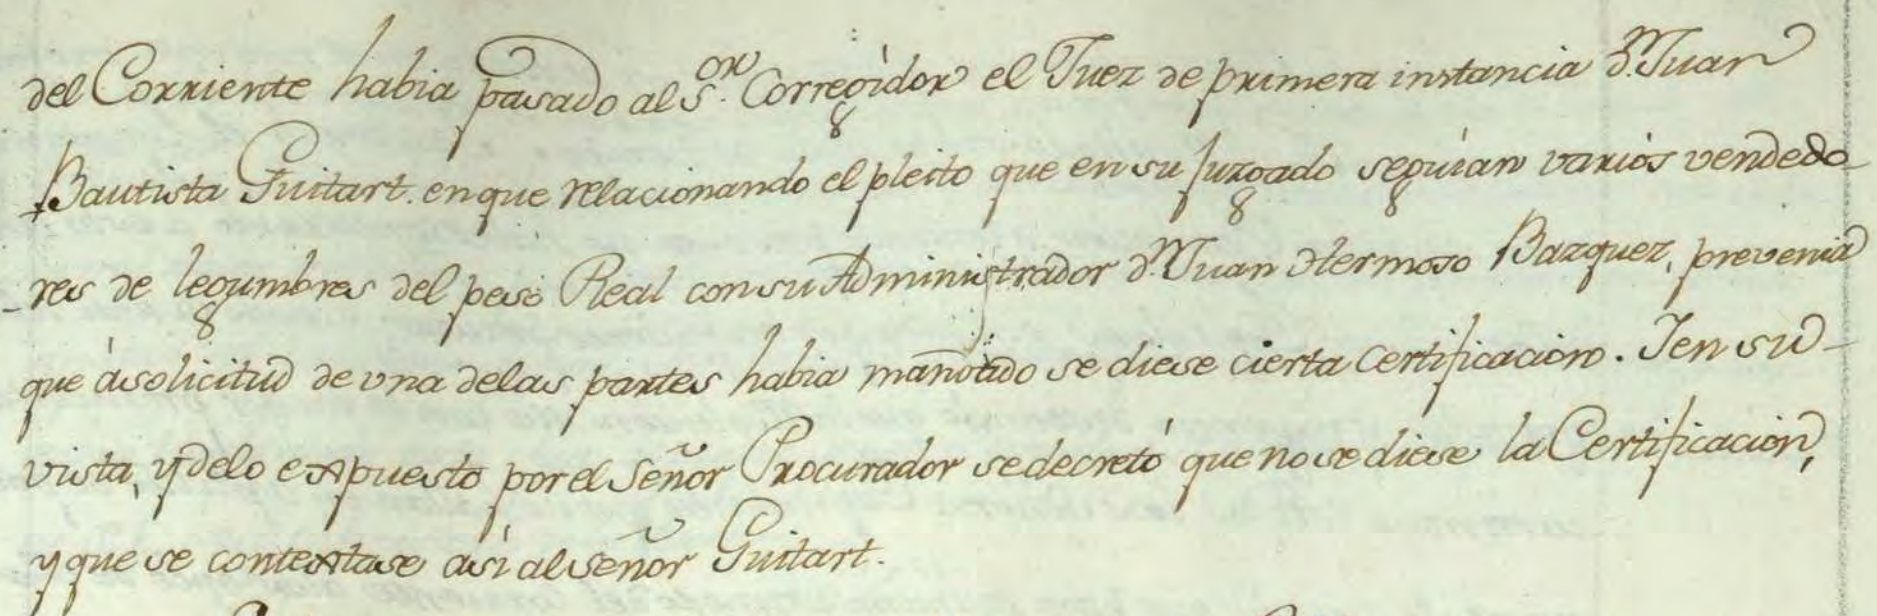 del Corriente habia pasado al S.or Corregidor el Juez de primera instancia D. Juan
Bautista Guitart. en que relacionando el pleito que en su juzgado seguian varios vendedo
-res de legumbres del peso Real con su Administrador D. Juan Hermoso Bazquez, prevenia
que á solicitud de una de las partes habia mandado se diese cierta Certificacion. Y en su
vista, y de lo expuesto por el Señor Procurador se decretó que no se diese la Certificacion,
y que se contextase asi al señor Guitart.